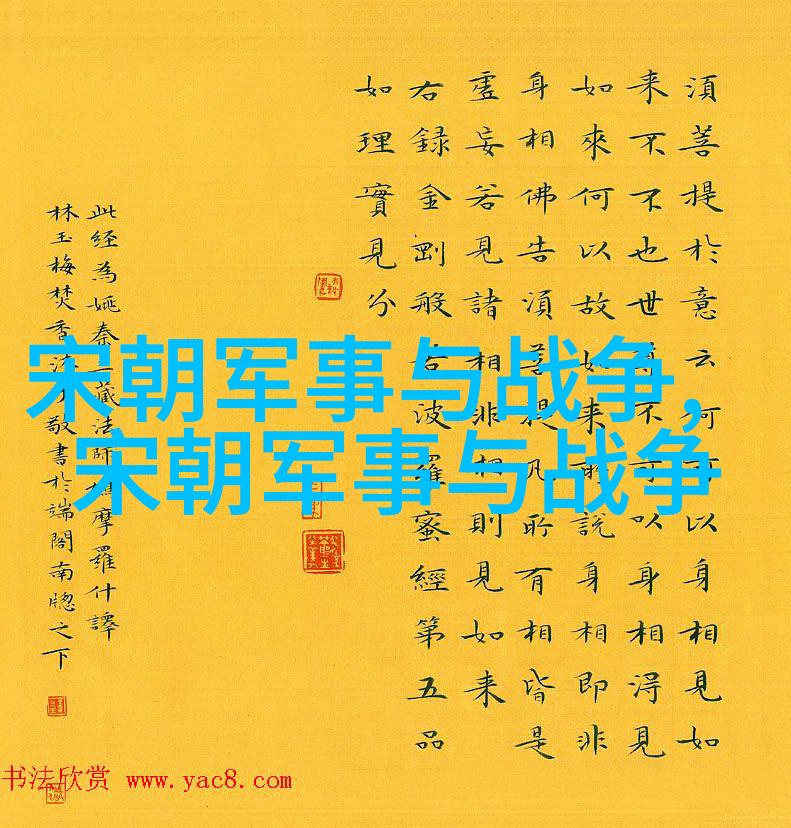 須菩提於意云何可以身相見如
来不不也世尊不可以身相得見
如來何以故如来所説身相即非
身相佛告須菩提凡所有相皆是
虚妄若見諸相非相則見如来
右録金剛般若波羅蜜經第五品
如理實見分
此经為姚秦三藏法師鳩摩羅什譯
林玉梅焚香沐手敬書於端閣南牕之下
宋朝军事与战争,
宋朝军事与战争
书法欣赏 www.yac8.com